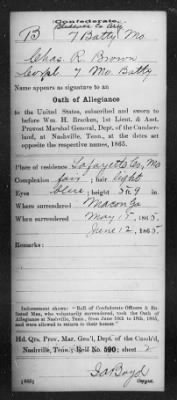 Confederate.
B 7 Batty Mo
Chas. R. Brown
Corpl 7 Mo. Batty
Name appears as signature to an
Oath of Allegiance
to the United States, subscribed and sworn to
before Wm. H. Bracken, 1st Lieut. & Asst.
Provost Marshal General, Dept. of the Cumber-
land, at Nashville, Tenn., at the dates set
opposite the respective names, 1865.
Place of residence Lafayette Co, Mo
Complexion fair; hair light
Eyes blue; height 5 ft. 9 in.
Where surrendered Macon Ga
When surrendered May 1, 1865.
June 12, 1865
Remarks:
Indorsement shows: "Roll of Confederate Officers & En-
listed Men, who voluntarily surrendered, took the Oath of
Allegiance at Nashville, Tenn., from June 10th to 15th, 1865,
and were allowed to return to their homes."
Hd. Qrs. Prov. Mar. Gen'l, Dept. of the Cumb'd,
Nashville, Tenn.; Roll No. 590; sheet 2
Boyd
Copyist.